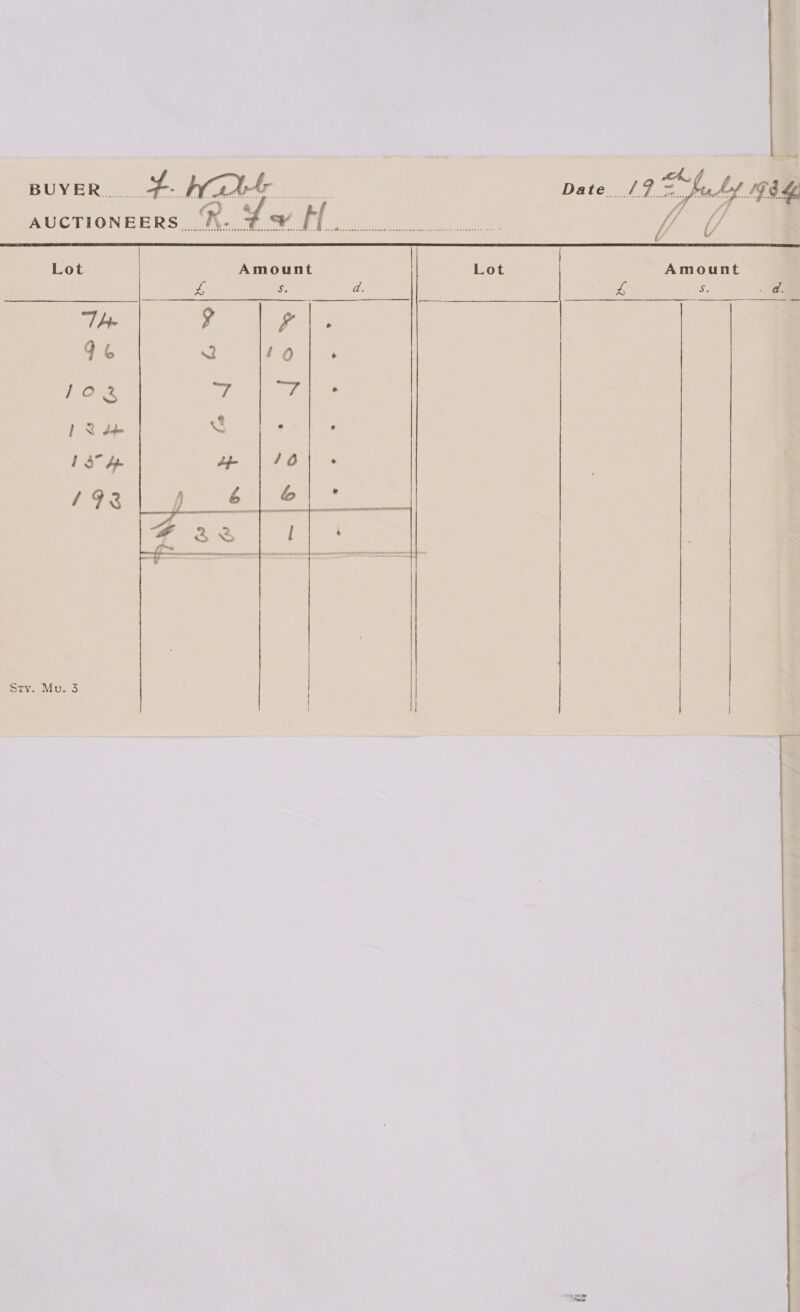 BUYER F. Date 19th July
AUCTIONEERS R. F & H
Lot Amount Lot Amount
£ s. d. £ s. d.
74 8 8 .
96 2 10 .
103 7 7 .
124 3 . .
154 4 10 .
193 6 6 .
£ 32 1 .
Sty. Mu. 3